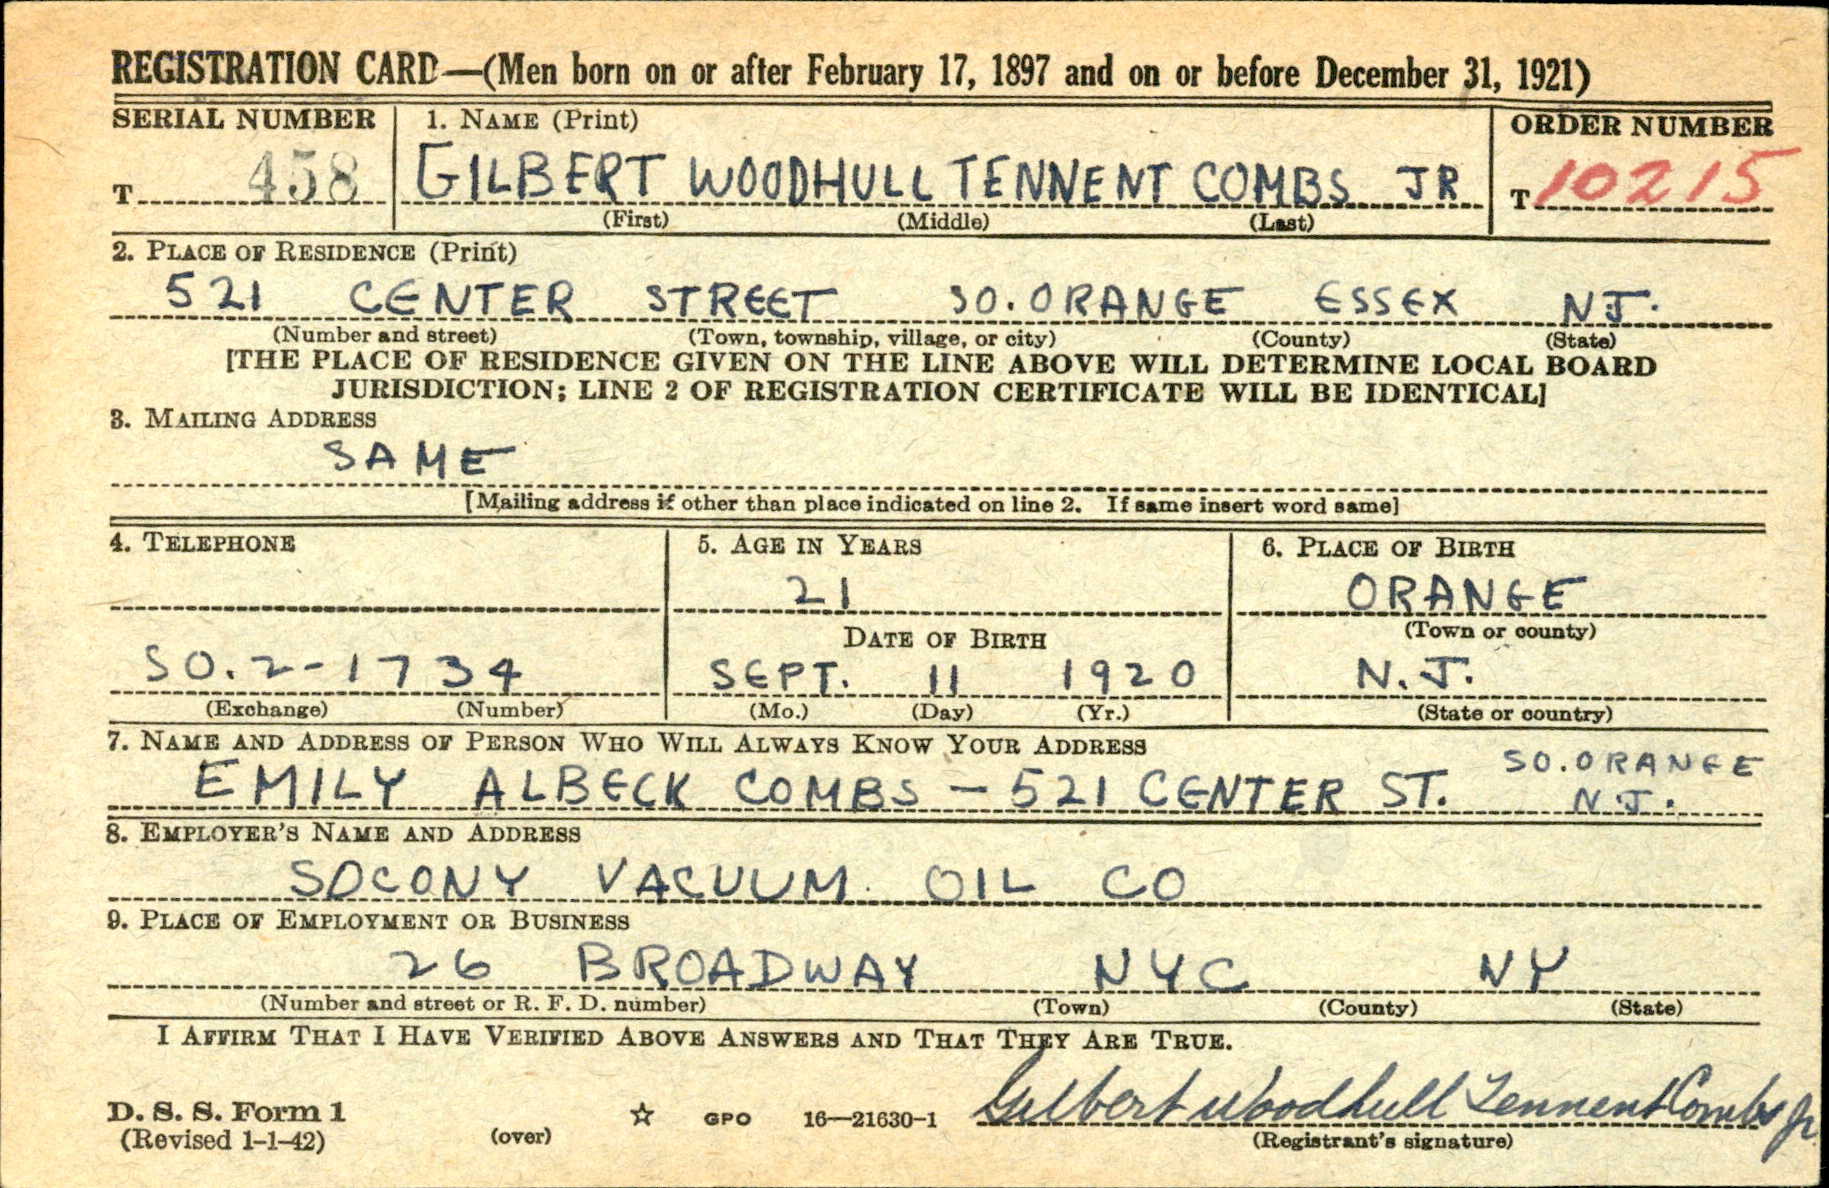 REGISTRATION CARD—(Men born on or after February 17, 1897 and on or before December 31, 1921)
SERIAL NUMBER 1. NAME (Print) ORDER NUMBER
T 458 GILBERT WOODHULL TENNENT COMBS JR T 10215
(First) (Middle) (Last)
2. PLACE OF RESIDENCE (Print)
521 CENTER STREET SO. ORANGE ESSEX NJ.
(Number and street) (Town, township, village, or city) (County) (State)
[THE PLACE OF RESIDENCE GIVEN ON THE LINE ABOVE WILL DETERMINE LOCAL BOARD
JURISDICTION; LINE 2 OF REGISTRATION CERTIFICATE WILL BE IDENTICAL]
3. MAILING ADDRESS
SAME
[Mailing address if other than place indicated on line 2. If same insert word same]
4. TELEPHONE 5. AGE IN YEARS 6. PLACE OF BIRTH
21 ORANGE
DATE OF BIRTH (Town or county)
SO. 2-1734 SEPT. 11 1920 N.J.
(Exchange) (Number) (Mo.) (Day) (Yr.) (State or country)
7. NAME AND ADDRESS OF PERSON WHO WILL ALWAYS KNOW YOUR ADDRESS
EMILY ALBECK COMBS - 521 CENTER ST. SO. ORANGE
N.J.
8. EMPLOYER'S NAME AND ADDRESS
SOCONY VACUUM OIL CO
9. PLACE OF EMPLOYMENT OR BUSINESS
26 BROADWAY NYC NY
(Number and street or R. F. D. number) (Town) (County) (State)
I AFFIRM THAT I HAVE VERIFIED ABOVE ANSWERS AND THAT THEY ARE TRUE.
Gilbert Woodhull Tennent Combs Jr.
D. S. S. Form 1 ☆ GPO 16—21630-1
(Revised 1-1-42) (over) (Registrant's signature)